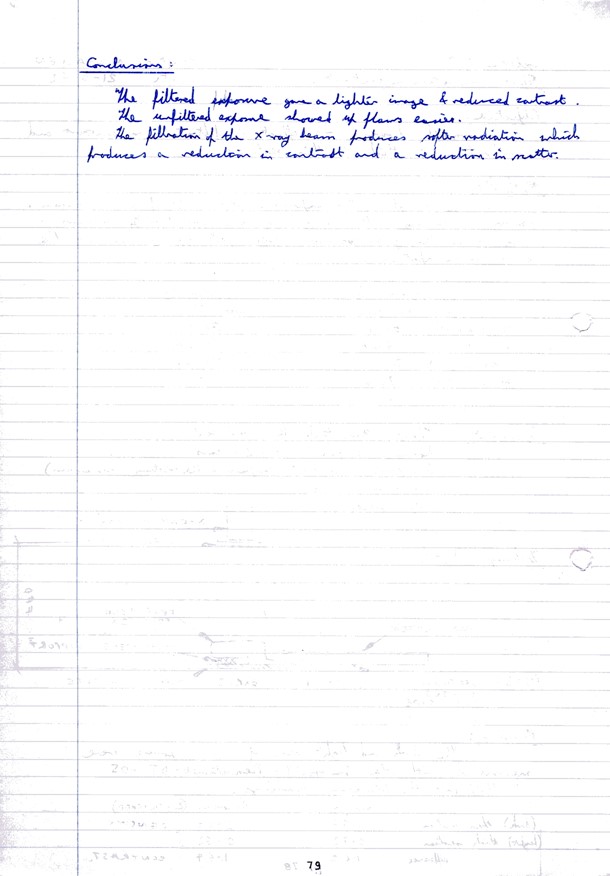 Conclusions :
The filtered exposure gave a lighter image & reduced contrast.
The unfiltered exposure showed up flaws easier.
The filtration of the x-ray beam produces softer radiation which
produces a reduction in contrast and a reduction in scatter.
79